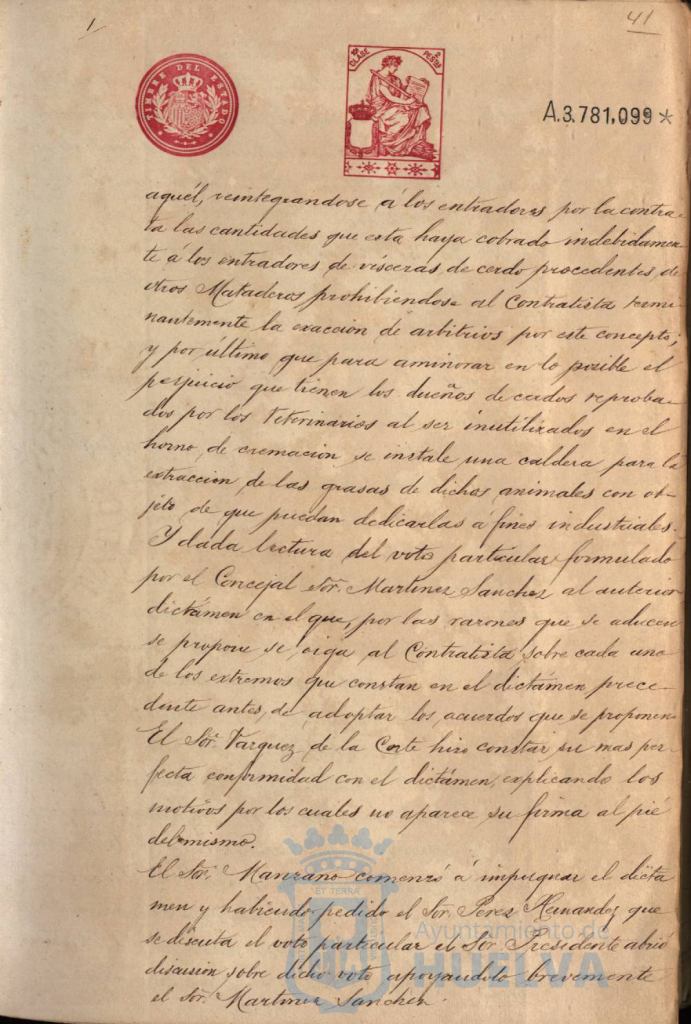 1
41
TIMBRE DEL ESTADO
10ª CLASE 2 PESTAS
A.3.781,099*
aquél, reintegrandose á los entradores por la contra-
ta las cantidades que esta haya cobrado indebidamen
te á los entradores de vísceras de cerdo procedentes de
otros Mataderos prohibiendose al Contratista termi-
nantemente la exacción de arbitrios por este concepto;
y por último que para aminorar en lo posible el
perjuicio que tienen los dueños de cerdos reproba-
dos por los Veterinarios al ser inutilizados en el
horno de cremación se instale una caldera para la
extracción de las grasas de dichos animales con ob-
jeto de que puedan dedicarlas á fines industriales.
Y dada lectura del voto particular formulado
por el Concejal Sor. Martinez Sanchez al anterior
dictámen en el que, por las razones que se aducen
se propone se oiga al Contratista sobre cada uno
de los extremos que constan en el dictámen prece-
dente antes de adoptar los acuerdos que se proponen
El Sor. Vazquez de la Corte hizo constar su mas per-
fecta conformidad con el dictámen, explicando los
motivos por los cuales no aparece su firma al pié
del mismo.
El Sor. Manzano comenzó á impugnar el dictá
men y habiendo pedido el Sor. Perez Hernandez que
se discuta el voto particular el Sor. Presidente abrió
discusión sobre dicho voto apoyandolo brevemente
el Sor. Martinez Sanchez.
ET TERRA
Ayuntamiento de
HUELVA